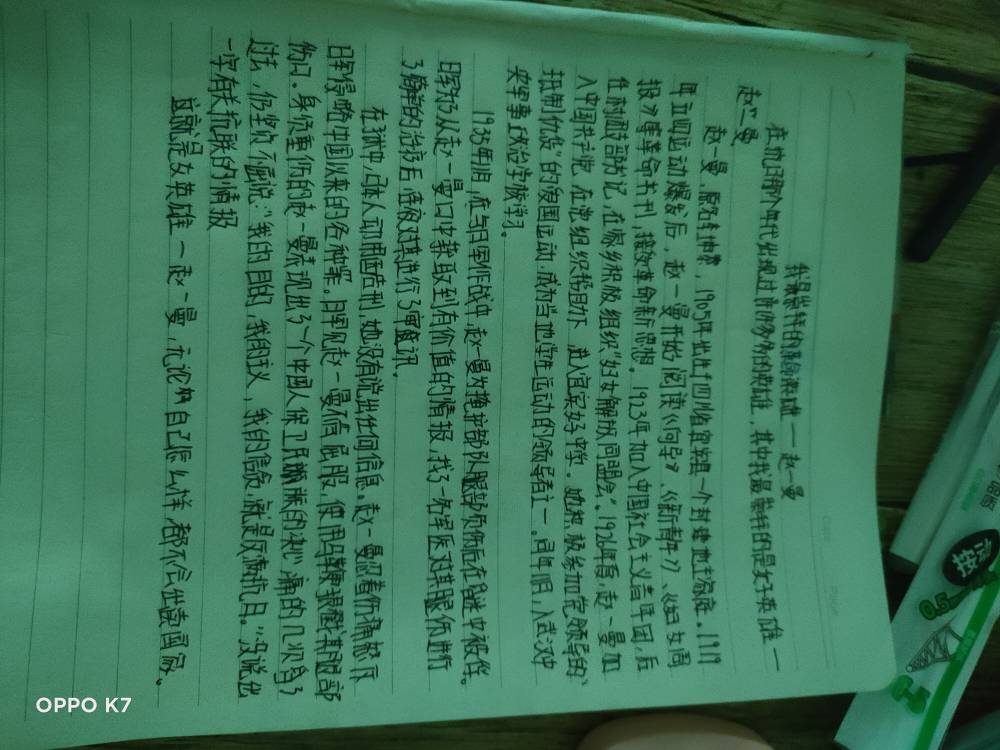 我最崇拜的革命英雄——赵一曼
在抗日那个年代出现过许许多多的英雄，其中我最崇拜的是女子英雄——
赵一曼
赵一曼，原名李坤泰，1905年出生于四川省宜宾县一个封建地主家庭。1919
年五四运动爆发后，赵一曼开始阅读《向导》、《新青年》、《妇女周
报》等革命书刊，接受革命新思想。1923年加入中国社会主义青年团，后
任村团支部书记，在家乡积极组织"妇女解放同盟会。"1926年夏，赵一曼加
入中国共产党，在党组织帮助下，进入宜宾女中学。她积极参加党领导的
抵制仇货"的爱国运动，成为当地学生运动的领导者之一，同年11月，入武汉中
央军事政治学校学习。
1935年11月，在与日军作战中，赵一曼为掩护部队腿部负伤后在昏迷中被俘。
日军为了从赵一曼口中获取到有价值的情报，找了一名军医对其腿伤进行
了简单的治疗后，连夜对其进行了审讯。
在狱中，日本人动用酷刑，她没有说出任何信息。赵一曼忍着伤痛怒斥
日军侵略中国以来的各种罪。日军见赵一曼不肯屈服，使用马鞭狠戳其腿部
伤口。身负重伤的赵一曼表现出了一个中国人保卫民族的决心，痛的几次昏了
过去，仍坚贞不屈说："我的目的，我的主义，我的信念，就是反满抗日。"没说出
一字有关抗联的情报
这就是女英雄——赵一曼，无论自己怎么样都不会出卖国家。
OPPO K7
0.5